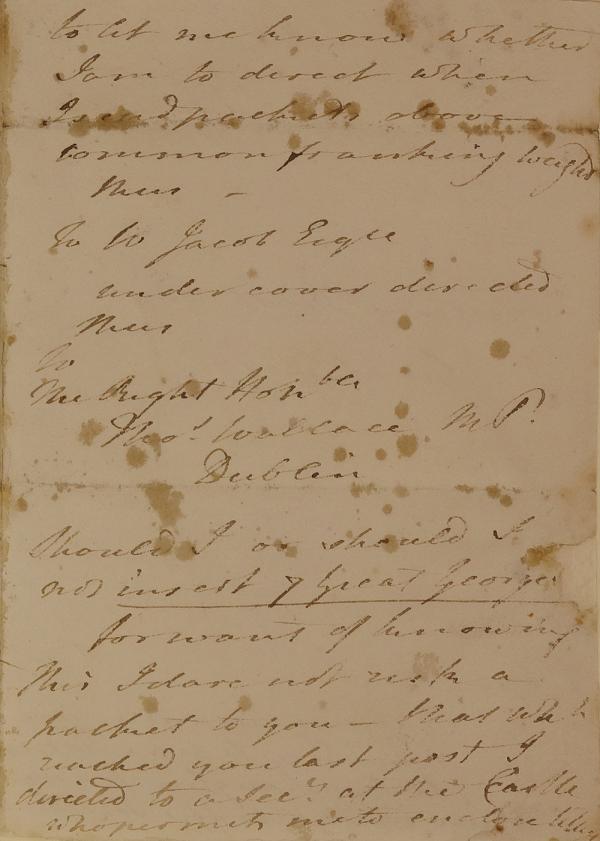 to let me know whether
I am to direct when
I send packets above
common franking weight
thus –
To W Jacob Esqre
under cover directed
thus
To
The Right Honble
Thos. Wallace MP.
Dublin
Should I or should I
not insert 7 Great George
for want of knowing
this I dare not risk a
packet to you – that which
reached you last post I
directed to a Secy at the Castle
who permits me to enclose